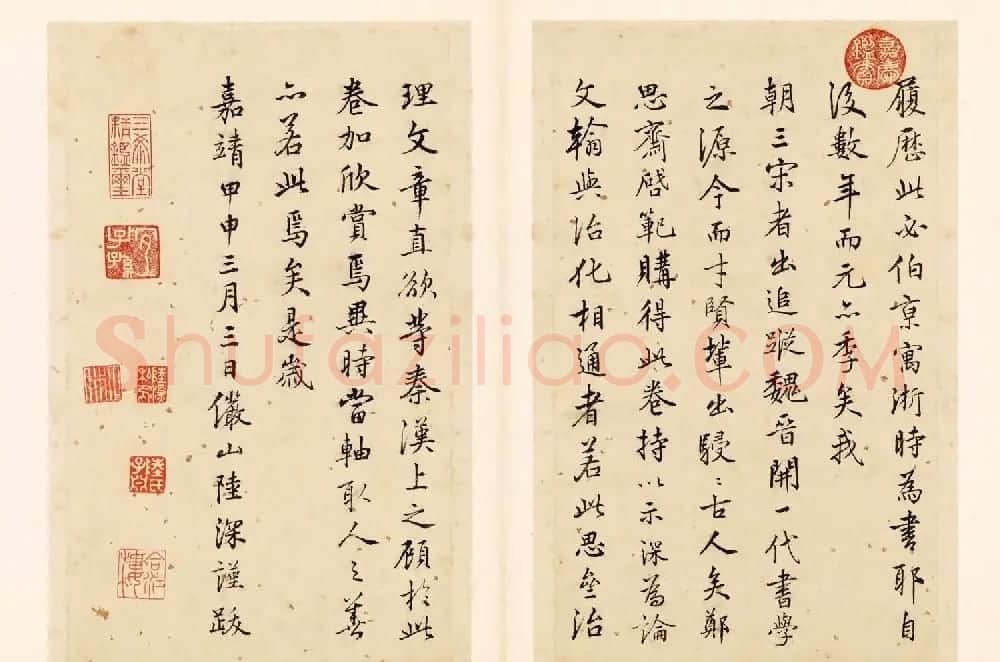 嘉慶鑑賞
履歷此必伯京寓浙時為書耶自
沒數年而元亦季矣我
朝三宋者出追蹤魏晉開一代書學
之源今而才賢輩出駸〻古人矣鄭
思齋啓範購得此卷持以示深為論
文翰與治化相通者若此思齋治
理文章直欲等秦漢上之顧於此
卷加欣賞焉異時當軸取人之善
亦若此焉矣是歲
嘉靖甲申三月三日儼山陸深謹跋
三希堂精鑑璽
宜子孫
Shufaziliao.COM